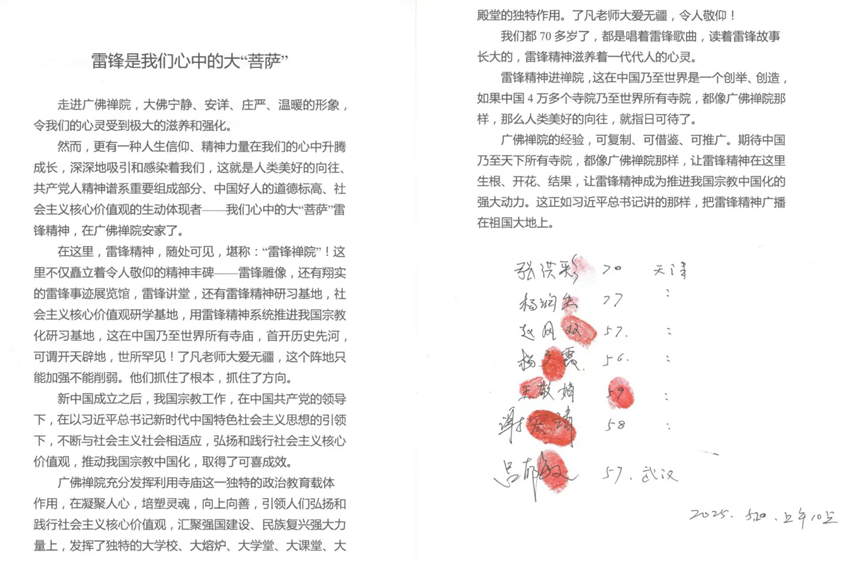 雷锋是我们心中的大“菩萨”
走进广佛禅院，大佛宁静、安详、庄严、温暖的形象，
令我们的心灵受到极大的滋养和强化。
然而，更有一种人生信仰、精神力量在我们的心中升腾
成长，深深地吸引和感染着我们，这就是人类美好的向往、
共产党人精神谱系重要组成部分、中国好人的道德标高、社
会主义核心价值观的生动体现者——我们心中的大“菩萨”雷
锋精神，在广佛禅院安家了。
在这里，雷锋精神，随处可见，堪称：“雷锋禅院”！这
里不仅矗立着令人敬仰的精神丰碑——雷锋雕像，还有翔实
的雷锋事迹展览馆，雷锋讲堂，还有雷锋精神研习基地，社
会主义核心价值观研学基地，用雷锋精神系统推进我国宗教
化研习基地，这在中国乃至世界所有寺庙，首开历史先河，
可谓开天辟地，世所罕见！了凡老师大爱无疆，这个阵地只
能加强不能削弱。他们抓住了根本，抓住了方向。
新中国成立之后，我国宗教工作，在中国共产党的领导
下，在以习近平总书记新时代中国特色社会主义思想的引领
下，不断与社会主义社会相适应，弘扬和践行社会主义核心
价值观，推动我国宗教中国化，取得了可喜成效。
广佛禅院充分发挥利用寺庙这一独特的政治教育载体
作用，在凝聚人心，培塑灵魂，向上向善，引领人们弘扬和
践行社会主义核心价值观，汇聚强国建设、民族复兴强大力
量上，发挥了独特的大学校、大熔炉、大学堂、大课堂、大
殿堂的独特作用。了凡老师大爱无疆，令人敬仰！
我们都 70 多岁了，都是唱着雷锋歌曲，读着雷锋故事
长大的，雷锋精神滋养着一代代人的心灵。
雷锋精神进禅院，这在中国乃至世界是一个创举、创造，
如果中国 4 万多个寺院乃至世界所有寺院，都像广佛禅院那
样，那么人类美好的向往，就指日可待了。
广佛禅院的经验，可复制、可借鉴、可推广。期待中国
乃至天下所有寺院，都像广佛禅院那样，让雷锋精神在这里
生根、开花、结果，让雷锋精神成为推进我国宗教中国化的
强大动力。这正如习近平总书记讲的那样，把雷锋精神广播
在祖国大地上。
张洪彩 70 天津
杨润 77 :
赵凤双 57. :
杨 霞 56. :
王敬 59 :
谢 58 :
吕 敏 57. 武汉
2025. 5.20. 上午10点